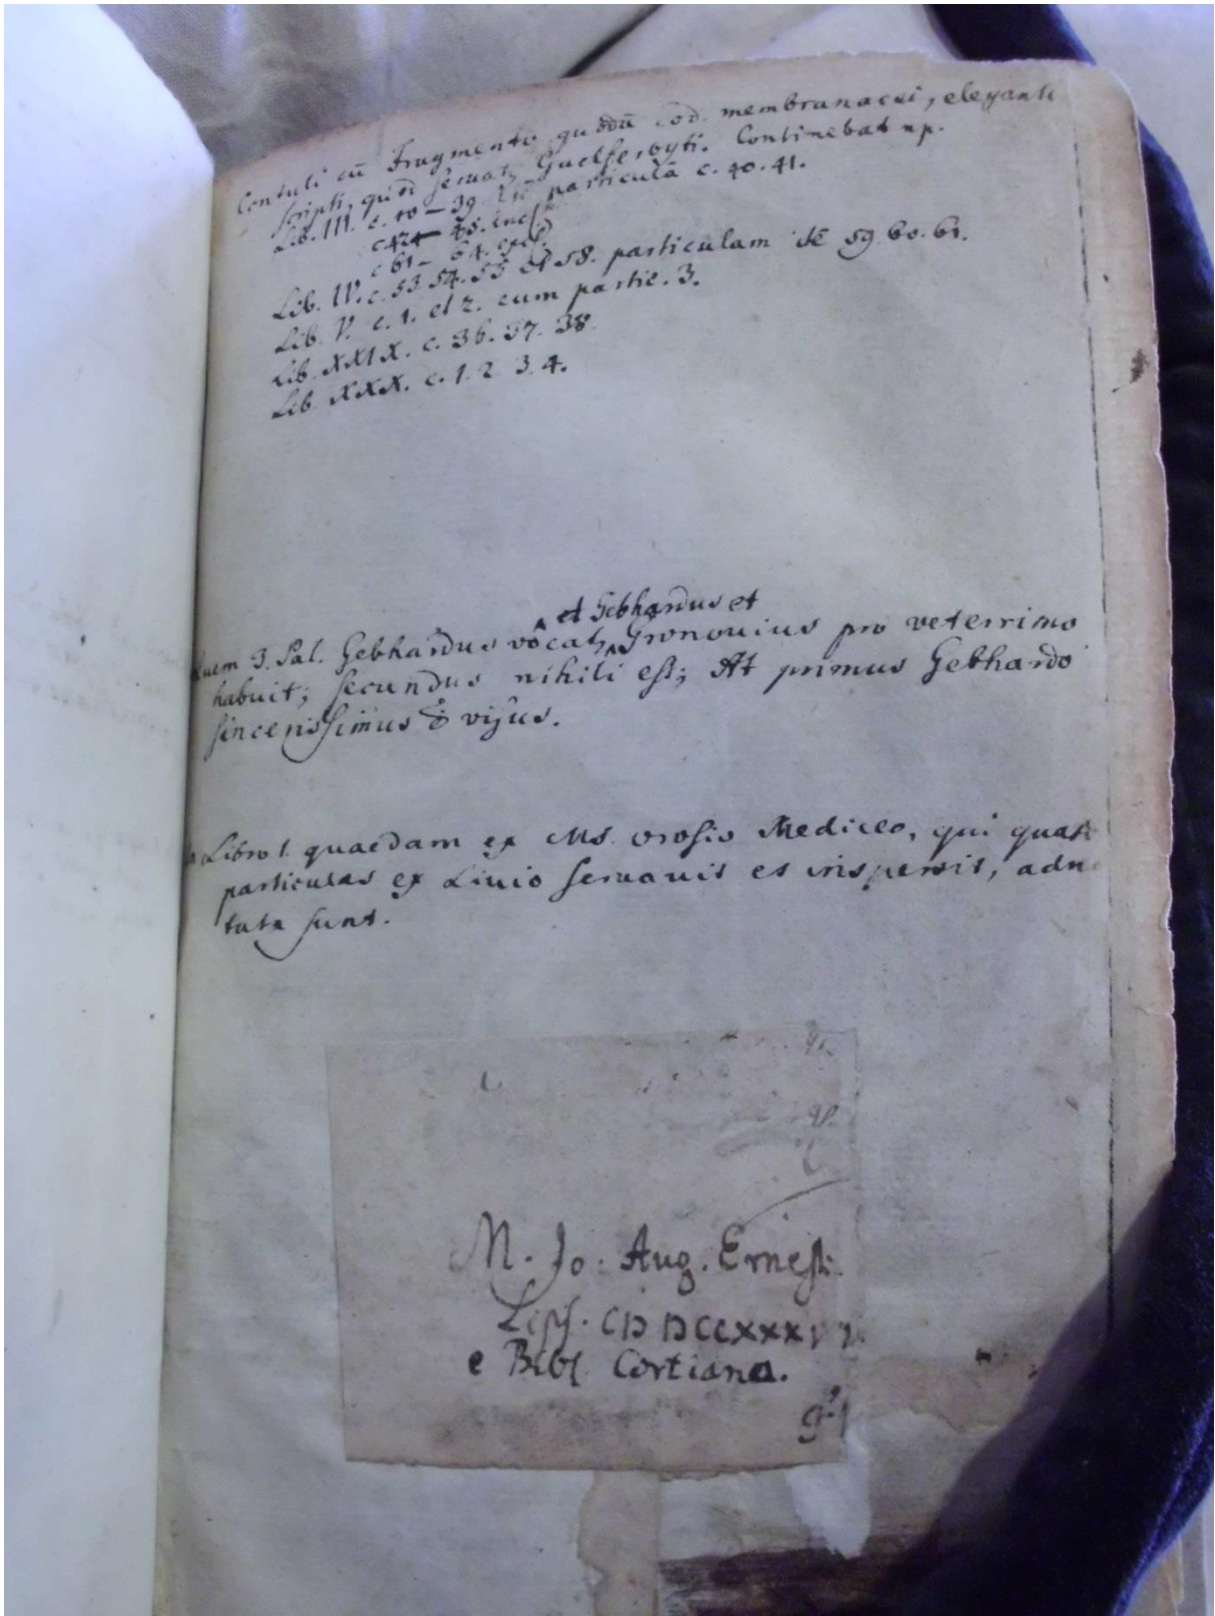 Contuli cū Fragmento quodū cod. membranacei, eleganti
scripti, quod seruat, Guelferbyti. Continebat np.
Lib. III. c. 10 — 39 particulā c. 40. 41.
c 61 — 64.
Lib. IV. c. 53. 54. 55 et 58. particulam 59. 60. 61.
Lib. V. c. 1. et 2. cum partic. 3.
Lib. XXIX. c. 36. 37. 38.
Lib. XXX. c. 1. 2. 3. 4.
et Gebhardus et
quem J. Pal. Gebhardus vocat, Gronouius pro veterrimo
habuit; secundus nihili est; At primus Gebhardo
sincerissimus visus.
Libro 1. quaedam ex Ms. orosio Mediceo, qui
particulas ex Liuio seruauit et inspersit, adno
tata sunt.
M. Jo. Aug. Ernesti.
Lips. CIƆ IƆCCXXXV
e Bibl. Cortiana.